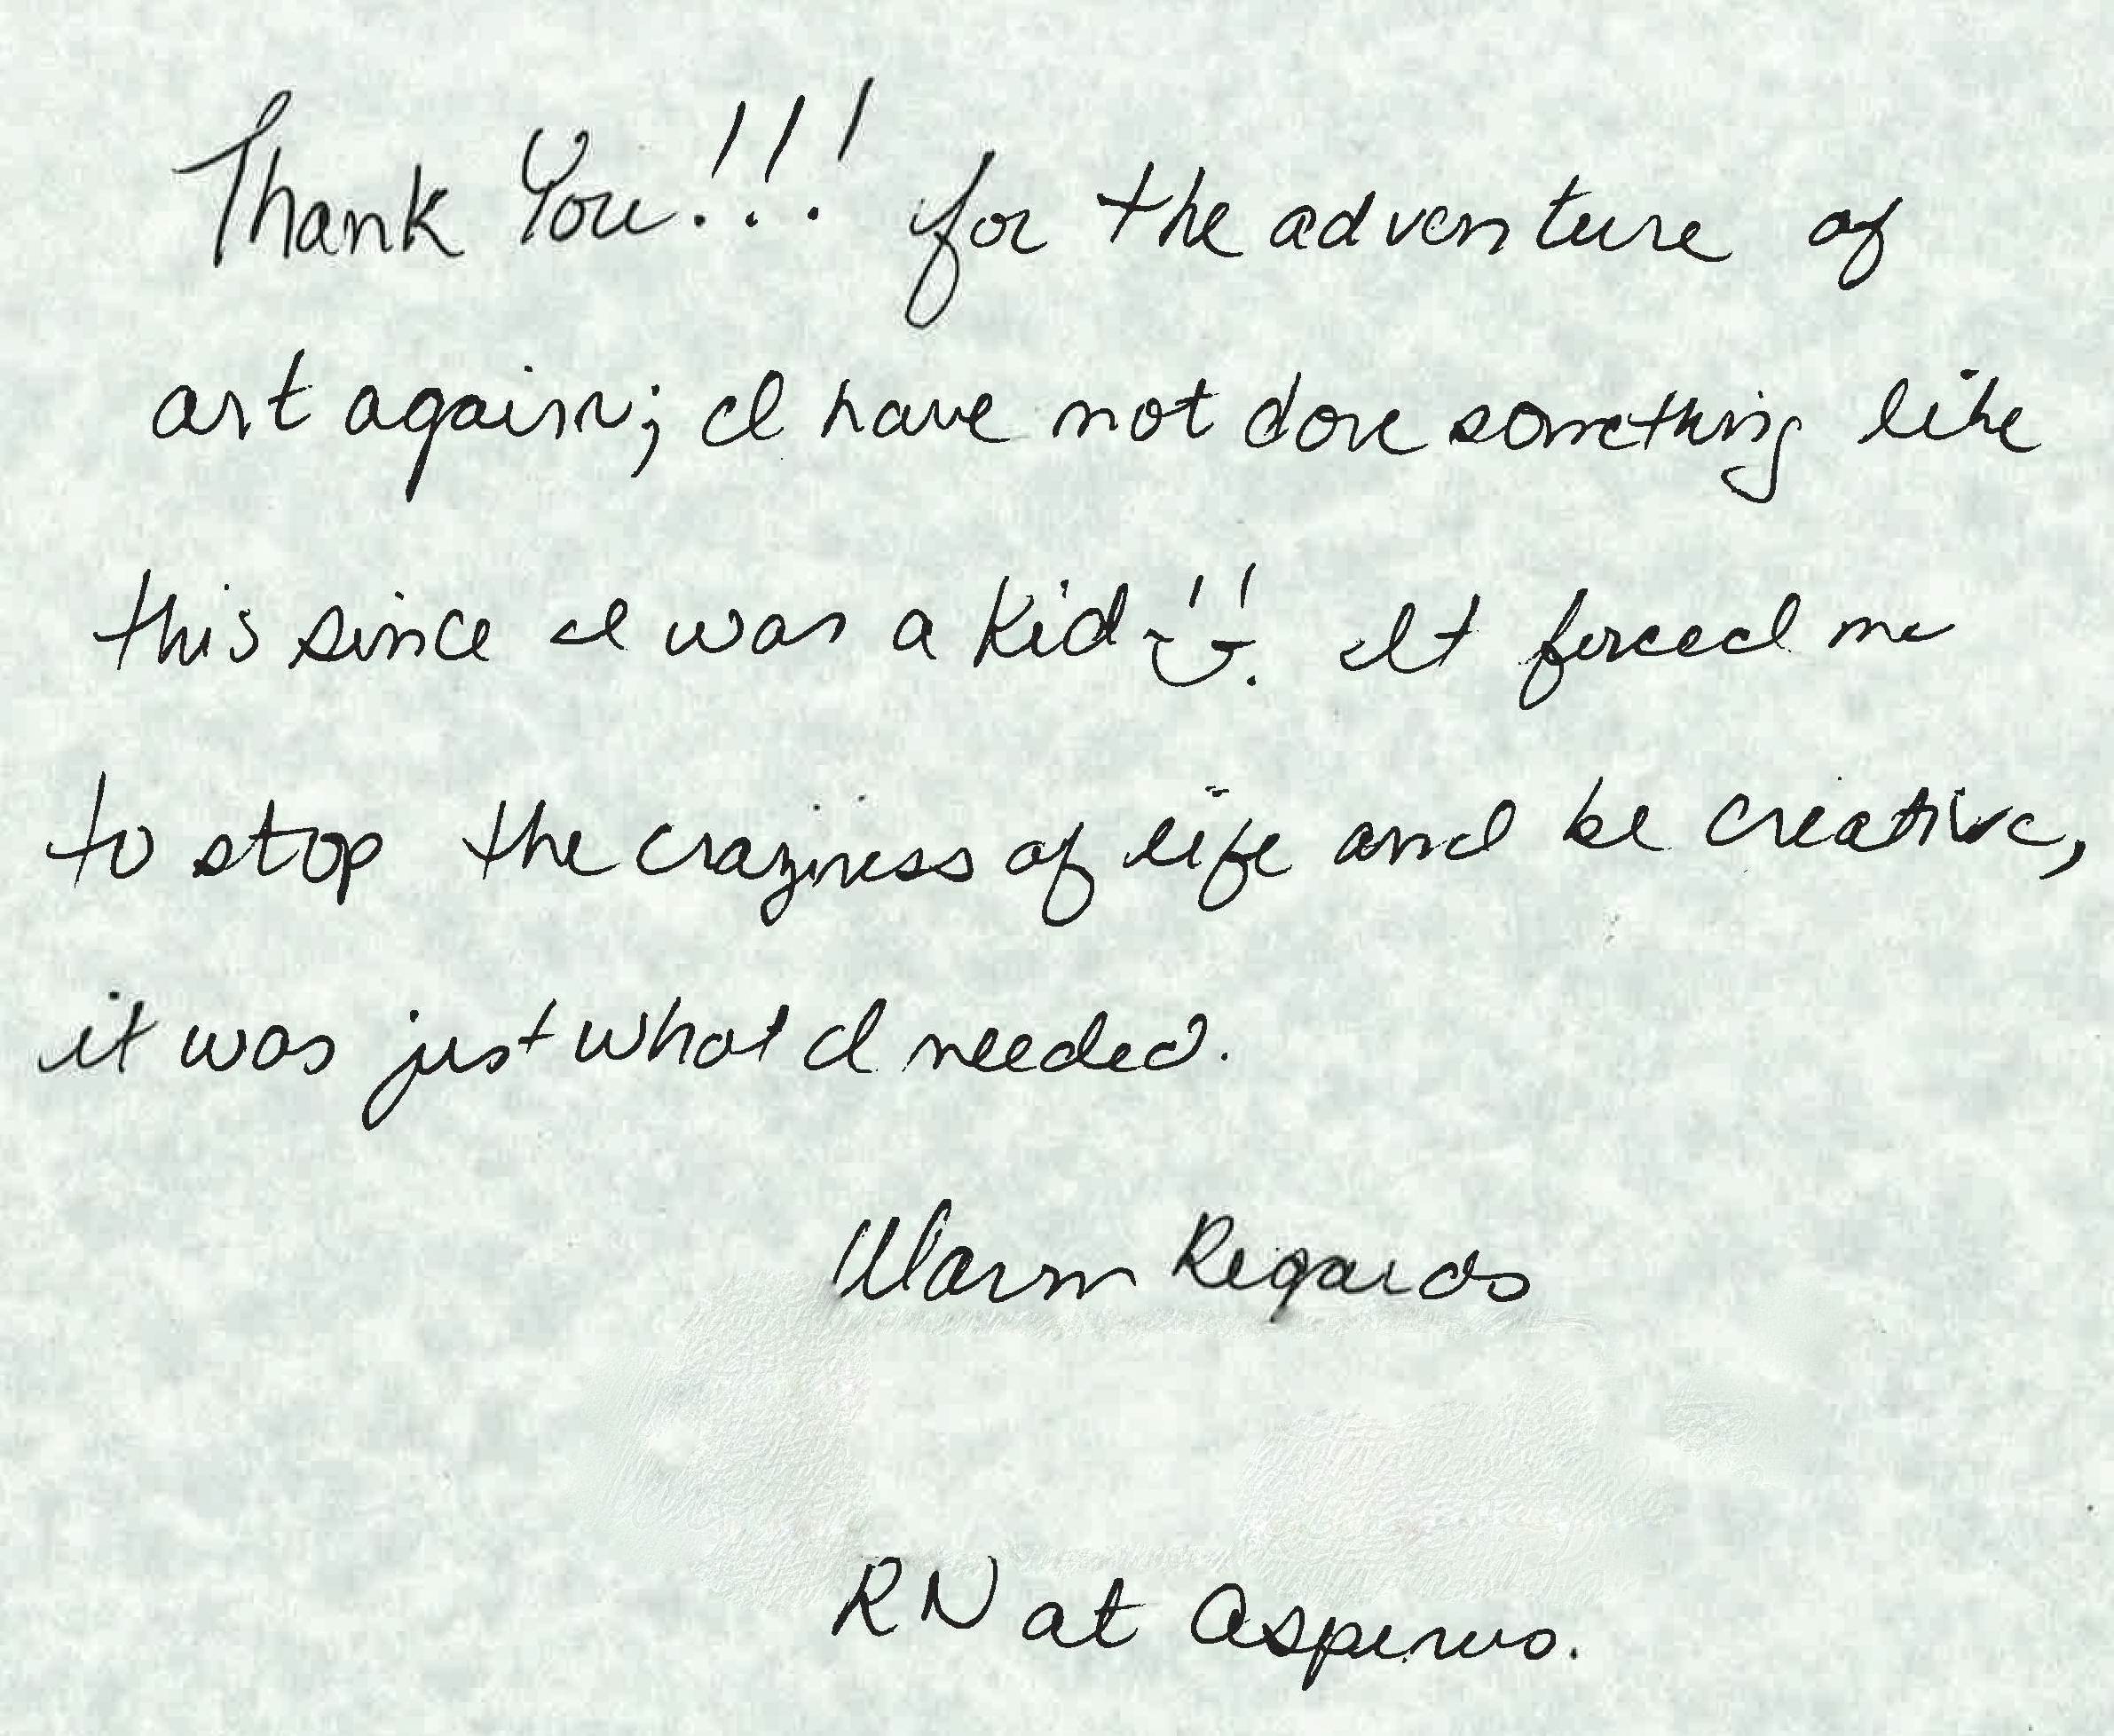 Thank You!!! for the adventure of
art again; I have not done something like
this since I was a kid :). It forced me
to stop the craziness of life and be creative,
it was just what I needed.
Warm Regards
RN at